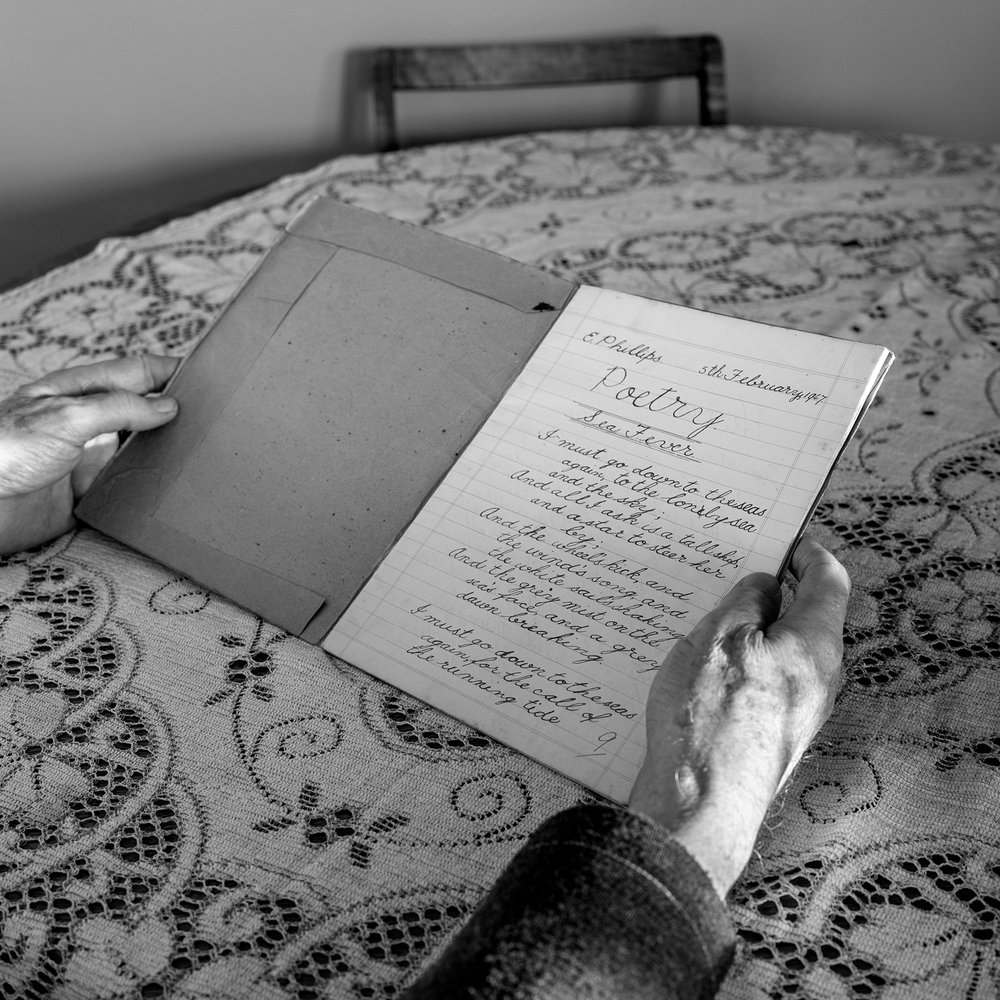 E. Phillips. 5th February, 1947.
Poetry.
Sea Fever.
I must go down to the seas
again, to the lonely sea
and the sky,
And all I ask is a tall ship,
and a star to steer her
by,
And the wheel's kick and
the wind's song and
the white sails shaking
And the grey mist on the
sea's face and a grey
dawn breaking
I must go down to the seas
again, for the call of
the running tide
9